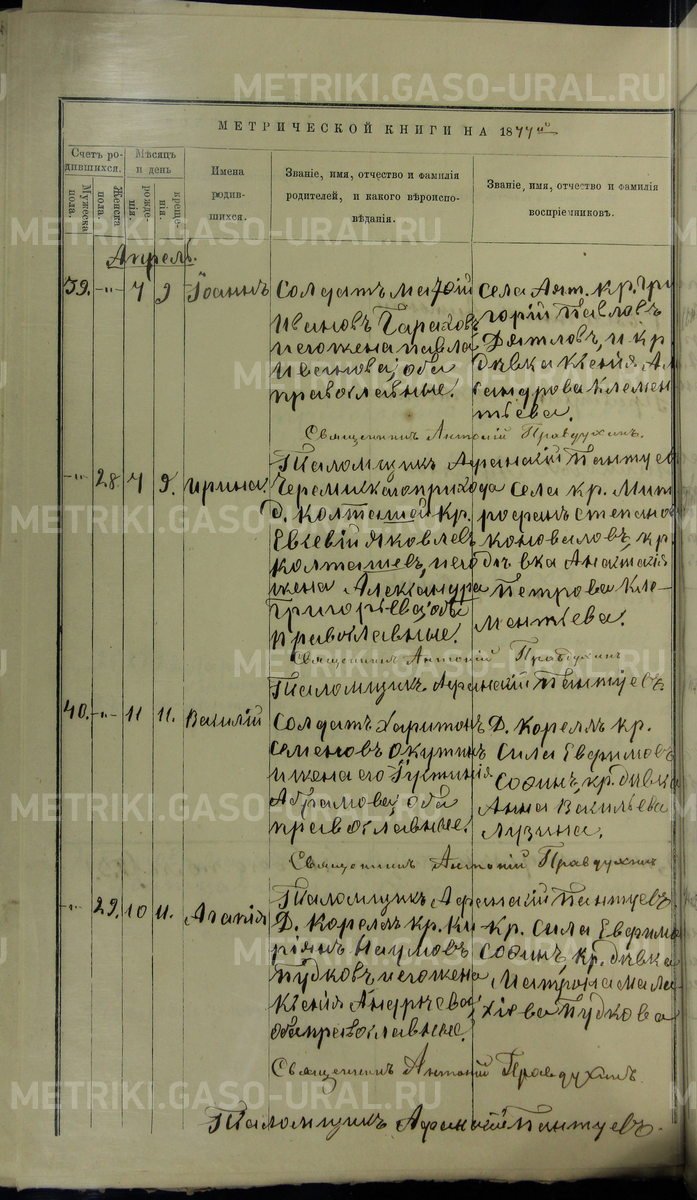 METRIKI.GASO-URAL.RU
МЕТРИЧЕСКОЙ КНИГИ НА 1877
Счетъ родившихся.
Мужеска пола.
Женска пола.
Мѣсяцъ и день
рожденія.
крещенія.
Имена родившихся.
Званіе, имя, отчество и фамилія родителей, и какого вѣроисповѣданія.
Званіе, имя, отчество и фамилія воспріемниковъ.
Апрель.
39. -"- 7 9 Іоаннъ
Солдатъ
Ивановъ
и его жена Павла
Иванова, оба
православные.
Села Ант. кр. Гри
горій Павловъ
Дятловъ, и кр.
дѣвка Ксенія Ал
сандрова Клемен
тьева.
Священникъ Антоній Правдухинъ.
Псаломщикъ Афанасій Пантуевъ
-"- 28 7 9. Ирина.
Черемисскаго прихода
д. Колташей кр.
Евсевій Яковлев
Колташевъ, и его
жена Александра
Григорьева, оба
православные.
села кр. Мит
рофанъ Степано
Коноваловъ, кр.
дѣвка Анастасія
Петрова Кле-
ментьева.
Священникъ Антоній Правдухинъ
Псаломщикъ Афанасій Пантуевъ
40. -"- 11 11. Василій
Солдатъ Харитонъ
Семеновъ Окутинъ
и жена его Іустинія
Абрамова, оба
православные.
Д. Корелкъ кр.
Сила Евфимовъ
Созинъ, кр. дѣвка
Анна Васильева
Лузина.
Священникъ Антоній Правдухинъ
Псаломщикъ Афанасій Пантуевъ
-"- 29. 10 11. Агапія
Д. Корелкъ кр. Ки
ріянъ Наумовъ
Пудковъ и его жена
Ксенія Андреева,
оба православные.
Кр. Сила Евфимо
Созинъ, кр. дѣвка
Матрона Мала
хіева Пудкова
Священникъ Антоній Правдухинъ.
Псаломщикъ Афанасій Пантуевъ.